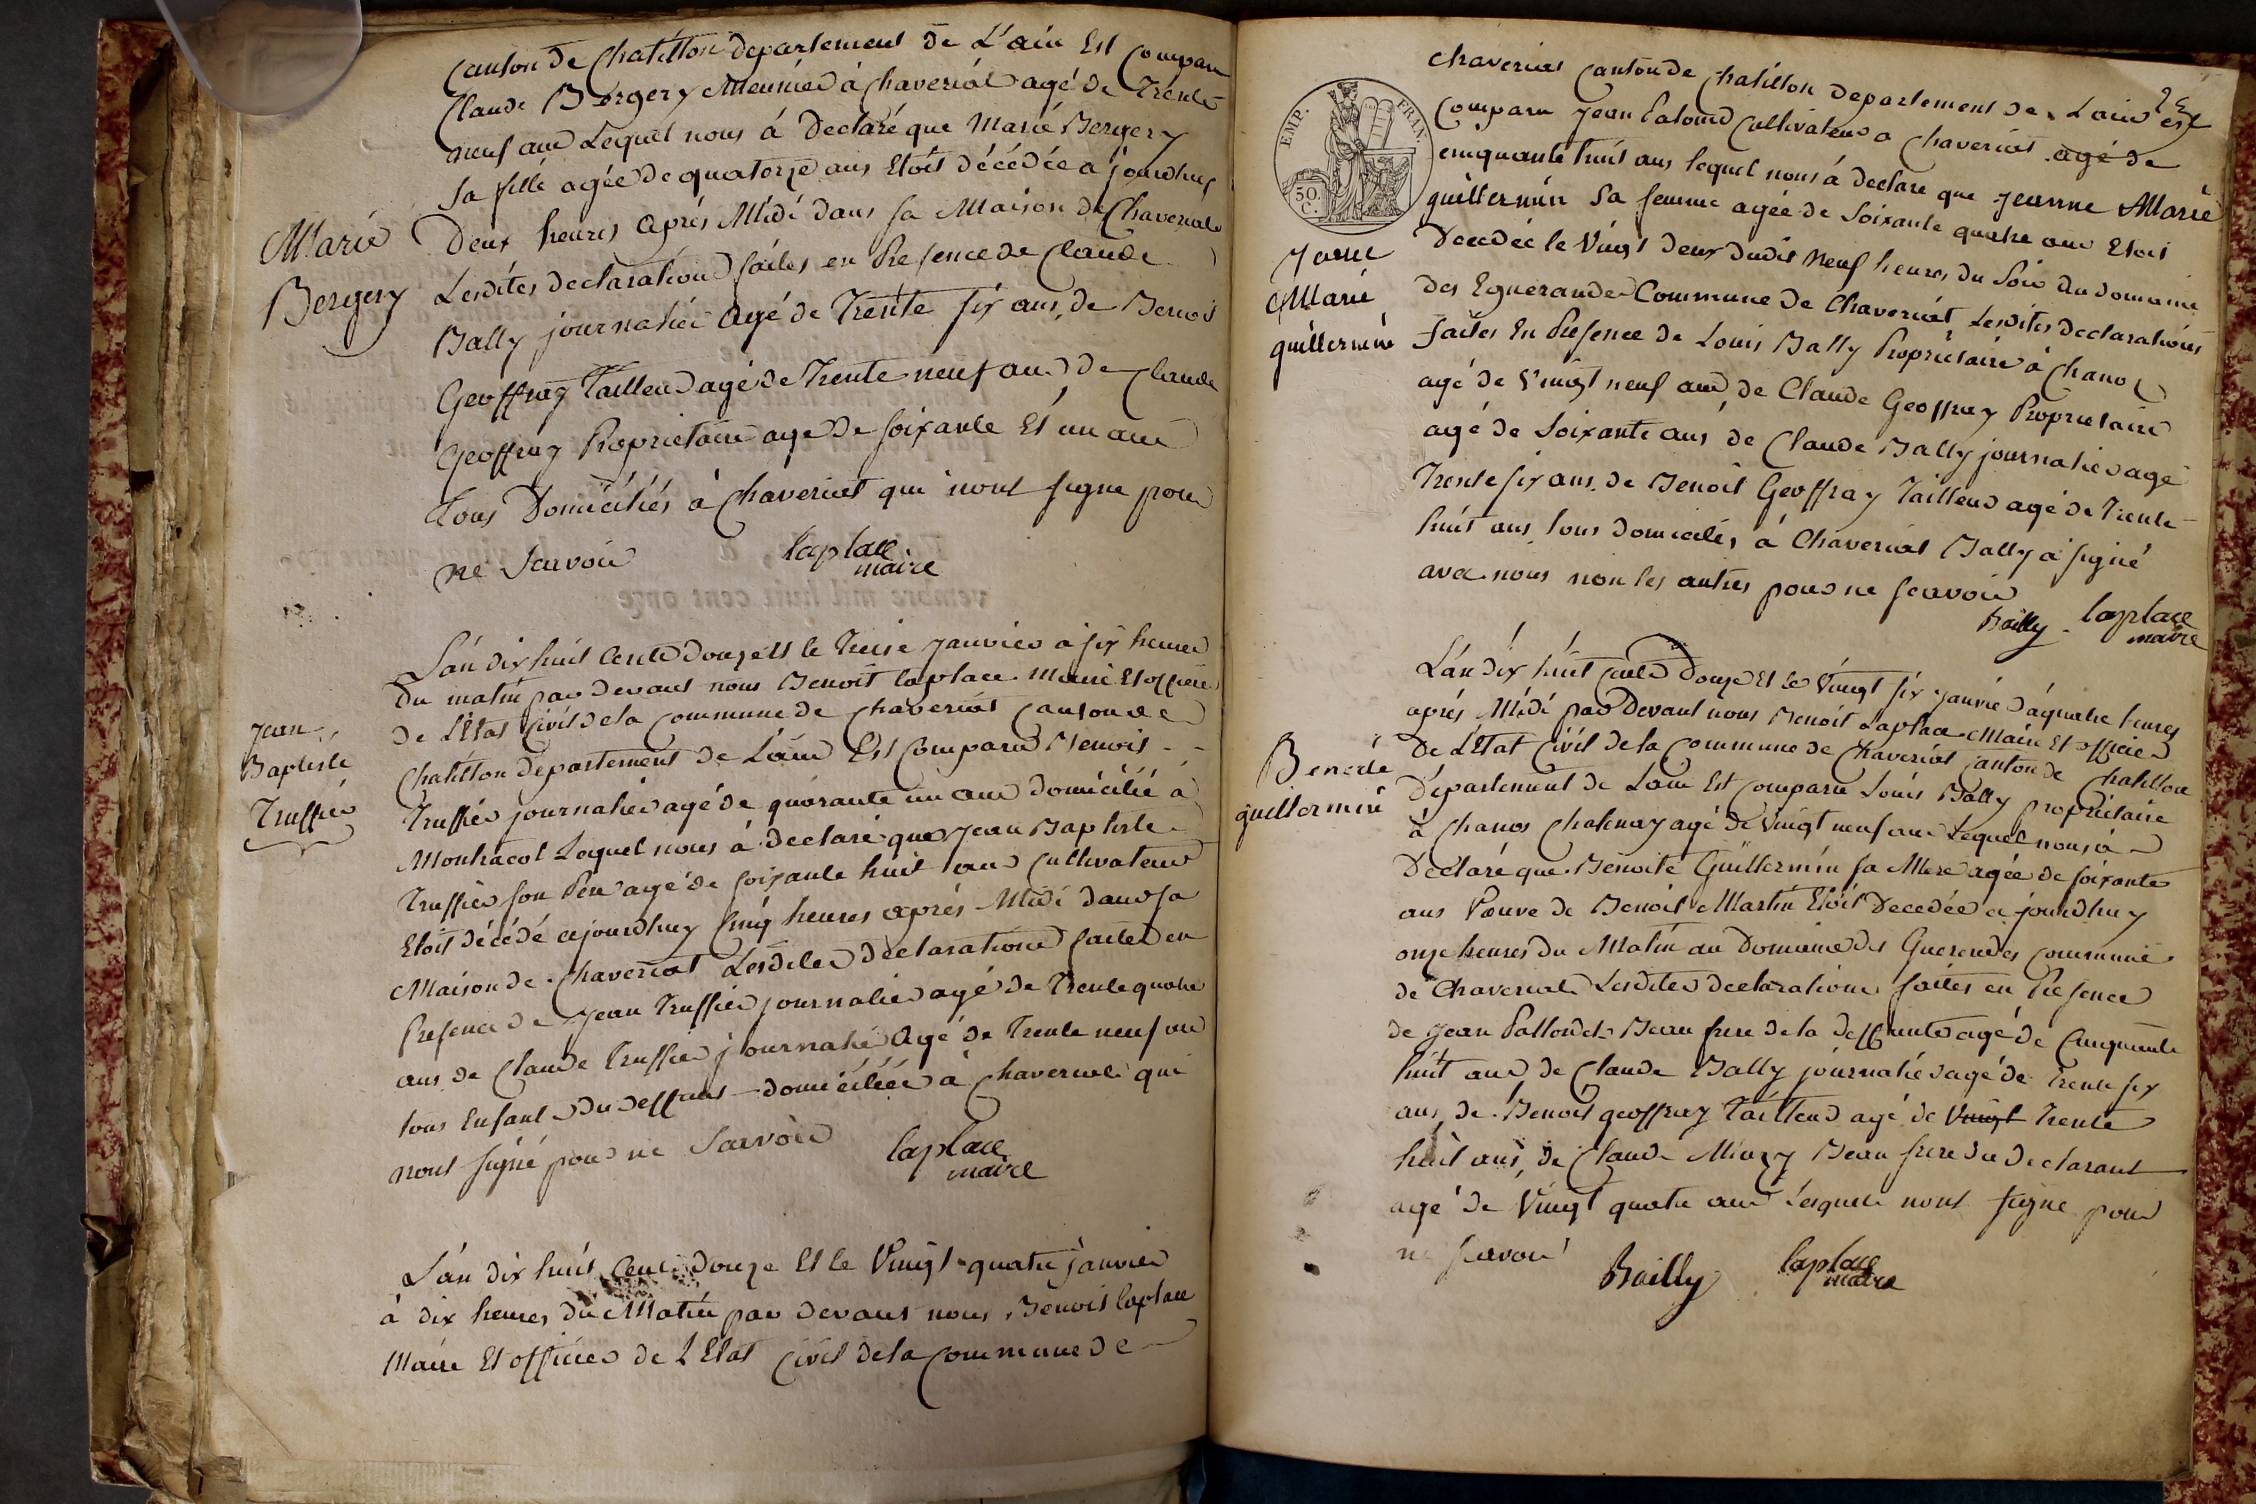 canton de Chatillon departement de L'ain Est Comparu
Claude Bergery Meunier à Chaveriat agé de Trente
neuf ans Lequel nous á Declaré que Marie Bergery
Sa fille agée de quatorze ans Etoit décédée a'jourdhuy
Deux heures aprés Midi dans sa Maison de Chaveriat
Lesdites declarations faites en Presence de Claude
Marie
Bergery
Bally journalier Agé de Trente six ans, de Benoit
Geoffray Tailleur agé de Trente neuf ans de Claude
Geoffray Proprietaire age de soixante Et un ans
tous Domiciliés à Chaveriat qui n'ont signe pour
ne Scavoir
laplace
maire
L'an dix huit Cents douze Et le Treise janvier a six heures
du matin par devant nous Benoit laplace maire Et officier
de L'Etat Civil de la Commune de Chaveriat Canton de
Chatillon departement de L'ain Est Comparu Benoit
Jean
Baptiste
Truffier
Truffier journalier agé de quarante un ans domicilié à
Montracol Lequel nous á declaré que Jean Baptiste
Truffier son Pere agé de soixante huit ans Cultivateur
Etoit décédé ajourdhuy Cinq heures aprés Midi dans sa
Maison de Chaveriat Lesdites déclarations faites en
Presence de Jean Truffier journalier agé de Trente quatre
ans de Claude Truffier journalier Agé de Trente neuf ans
tous Enfants du deffunt domiciliés à Chaveriat qui
n'ont signé pour ne Scavoir
laplace
maire
L'an dix huit Cents douze Et le Vingt quatre janvier
à dix heures du Matin par devant nous Benoit laplace
Maire Et officier de L'Etat Civil de la Commune de
25
Chaveriat Canton de Chatillon departement de Lain est
EMP. FRAN.
50
C.
Comparu Jean Palond Cultivateur a Chaveriat agé de
cinquante huit ans lequel nous á declare que Jeanne Marie
guillermin Sa femme agée de Soixante quatre ans Etoit
Decedée le Vingt deux dudit Neuf heures du Soir au domaine
Jeanne
Marie
guillermine
des Eguerandes Commune de Chaveriat Lesdites declarations
faites En Presence de Louis Bally Propriétaire à Chanos
agé de Vingt neuf ans, de Claude Geoffray Proprietaire
agé de Soixante ans de Claude Bally journalier agé
Trente six ans, de Benoit Geoffray Tailleur agé de Trente
huit ans, tous domiciliés à Chaveriat Bally à signé
avec nous non les autres pour ne scavoir
Bailly
laplace
maire
L'an dix huit Cents Douze Et le Vingt six janvier à quatre heures
aprés Midi par Devant nous Benoit Laplace Maire Et officier
De L'Etat Civil de la Commune de Chaveriat Canton de Chatillon
Benoite
guillermine
Département de Lain Est Comparu Louis Bally proprietaire
à Chanos Chatenay agé de Vingt neuf ans Lequel nous à
Déclaré que Benoite Guillermin sa Mere agée de soixante
ans Veuve de Benoit Martin Etoit Decedée ajourdhuy
onze heures du Matin au Domaine des Guerendes commune
de Chaveriat Lesdites declarations faites en Presence
de Jean Pallond Beau frere de la deffunte agé de Cinquante
huit ans de Claude Bally journalier agé de Trente six
ans, de Benoit geoffray Tailleur agé de Vingt Trente
huit ans, de Claude Mingy Beau frere du declarant
agé de Vingt quatre ans Lesquels n'ont signe pour
ne scavoir
Bailly
laplace
maire